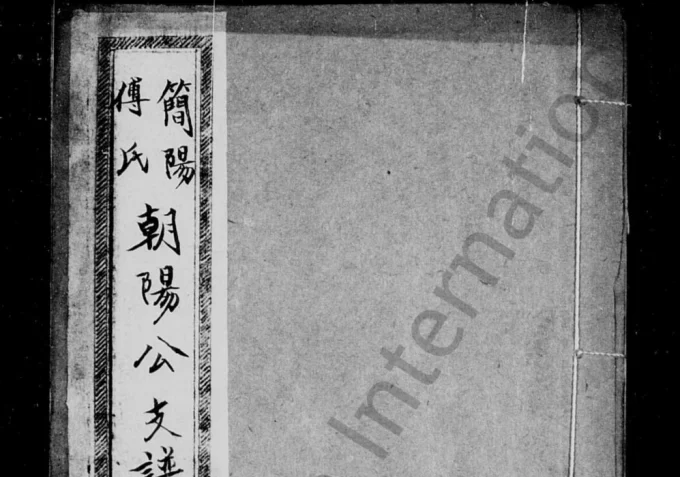 簡陽
傅氏
朝陽公支譜
International